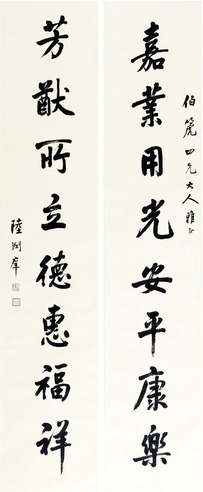 伯篪四兄大人雅正
嘉業用光安平康樂
芳猷所立德惠福祥
陸潤庠